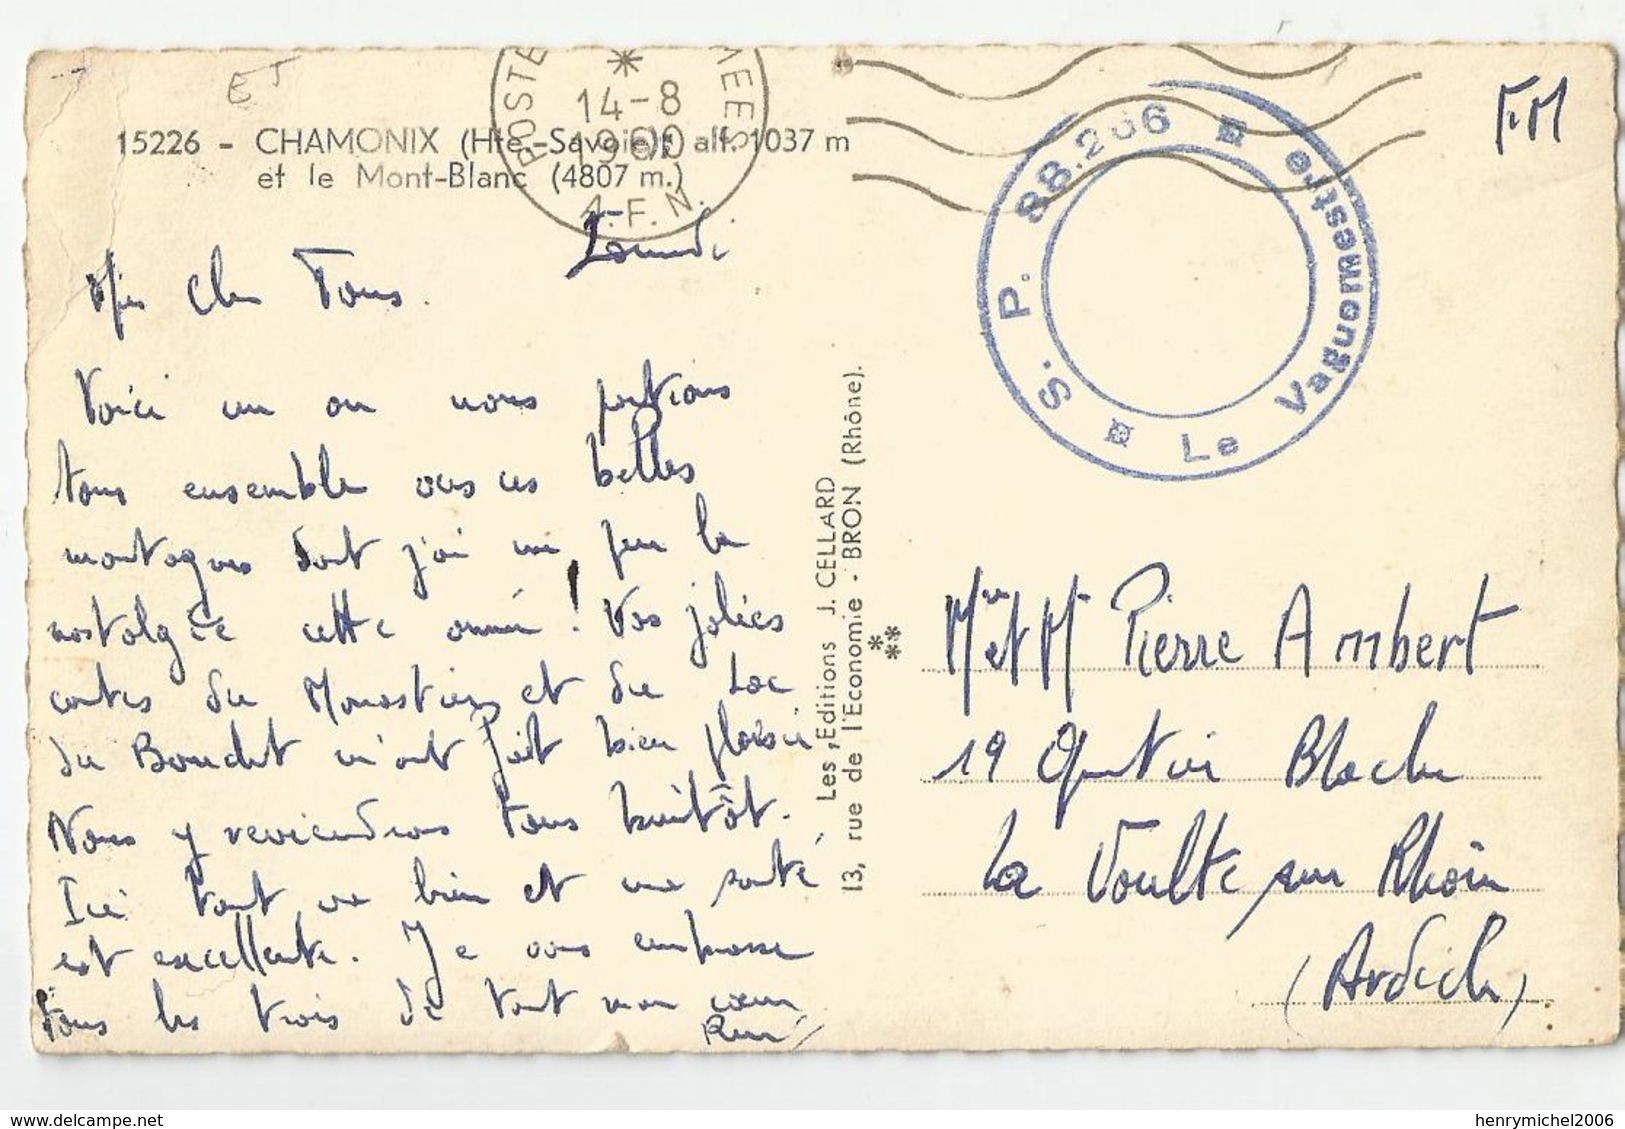 EJ
POSTE MEES
*
14-8
1960
A.F.N.
15226 - CHAMONIX (Hte.-Savoie), alt. 1037 m
et le Mont-Blanc (4807 m.)
S. P. 88.266 ¤ Le Vaguomestre ¤
FM
Lundi
Mes Chers Tous.
Voici un an nous partions
tous ensemble vers ces belles
montagnes dont j'ai un peu la
nostalgie cette année! Vos jolies
cartes du Monastier et du Lac
du Bouchet m'ont fait bien plaisir
Nous y reviendrons tous bientôt.
Ici tout va bien et ma santé
est excellente. Je vous embrasse
tous les trois de tout mon cœur
René
Les Editions J. CELLARD
13, rue de l'Economie - BRON (Rhône).
***
Mme et Mr Pierre Ambert
19 Quartier Blache
La Voulte sur Rhône
(Ardèche)
henrymichel2006